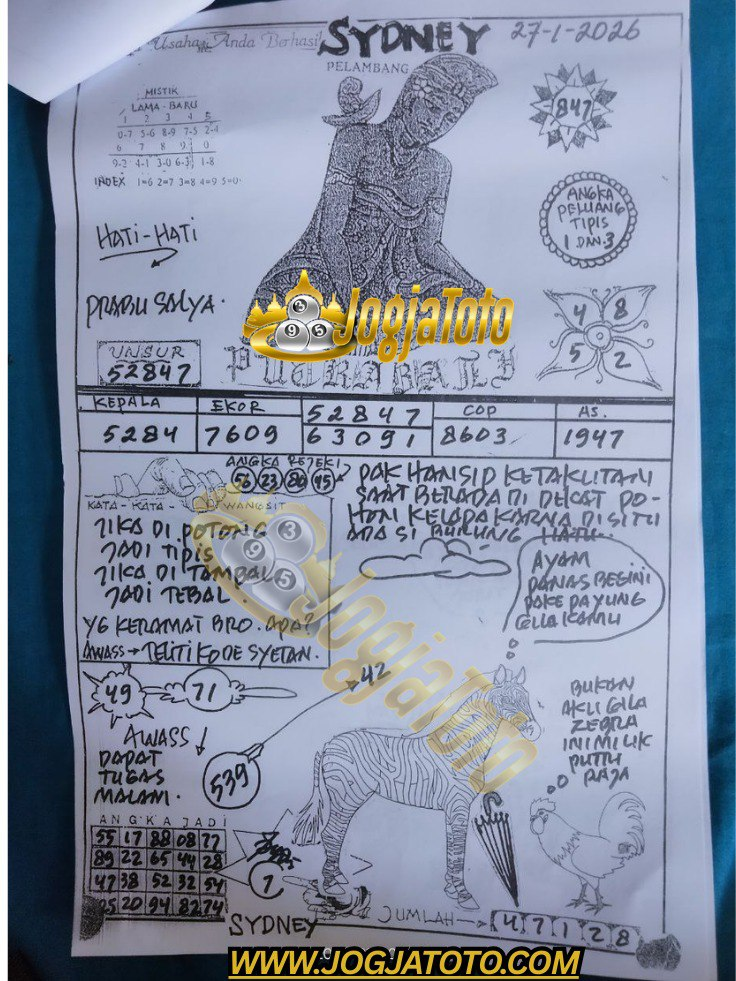 Usaha Anda Berhasil
SYDNEY
27-1-2026
PELAMBANG
MISTIK
LAMA - BARU
1 2 3 4 5
0-7 5-6 8-9 7-5 2-4
6 7 8 9 0
9-2 4-1 3-0 6-3 1-8
INDEX 1=6 2=7 3=8 4=9 5=0
847
ANGKA
PELUANG
TIPIS
1 DAN 3
HATI-HATI
PRABU SALYA.
JogjaToto
4 8
5 2
UNSUR
52847
PUTRA BALI
KEPALA EKOR 52847 COP AS.
5284 7609 63091 8603 1947
ANGKA REJEKI
56 23 80 45
KATA - KATA - WANGSIT
JIKA DI POTONG
JADI TIPIS
JIKA DI TAMBAL
JADI TEBAL.
YG KERAMAT BRO. APA?
AWASS → TELITI KODE SYETAN.
PAK HANSIP KETAKUTAN
SAAT BERADA DI DEKAT PO-
HON KELAPA KARNA DISITU
ADA SI BURUNG HATU..
AYAM
PANAS BEGINI
PAKE PAYUNG
GILA KAMU
JogjaToto
49 71
42
539
AWASS
DAPAT
TUGAS
MALAM.
BUKAN
AKU GILA
ZEBRA
INI MILIK
PUTU
RAJA
ANGKA JADI
55 17 88 08 77
89 22 65 44 28
47 38 52 32 54
25 20 94 82 74
7
SYDNEY
JUMLAH 4 7 1 2 8
WWW.JOGJATOTO.COM